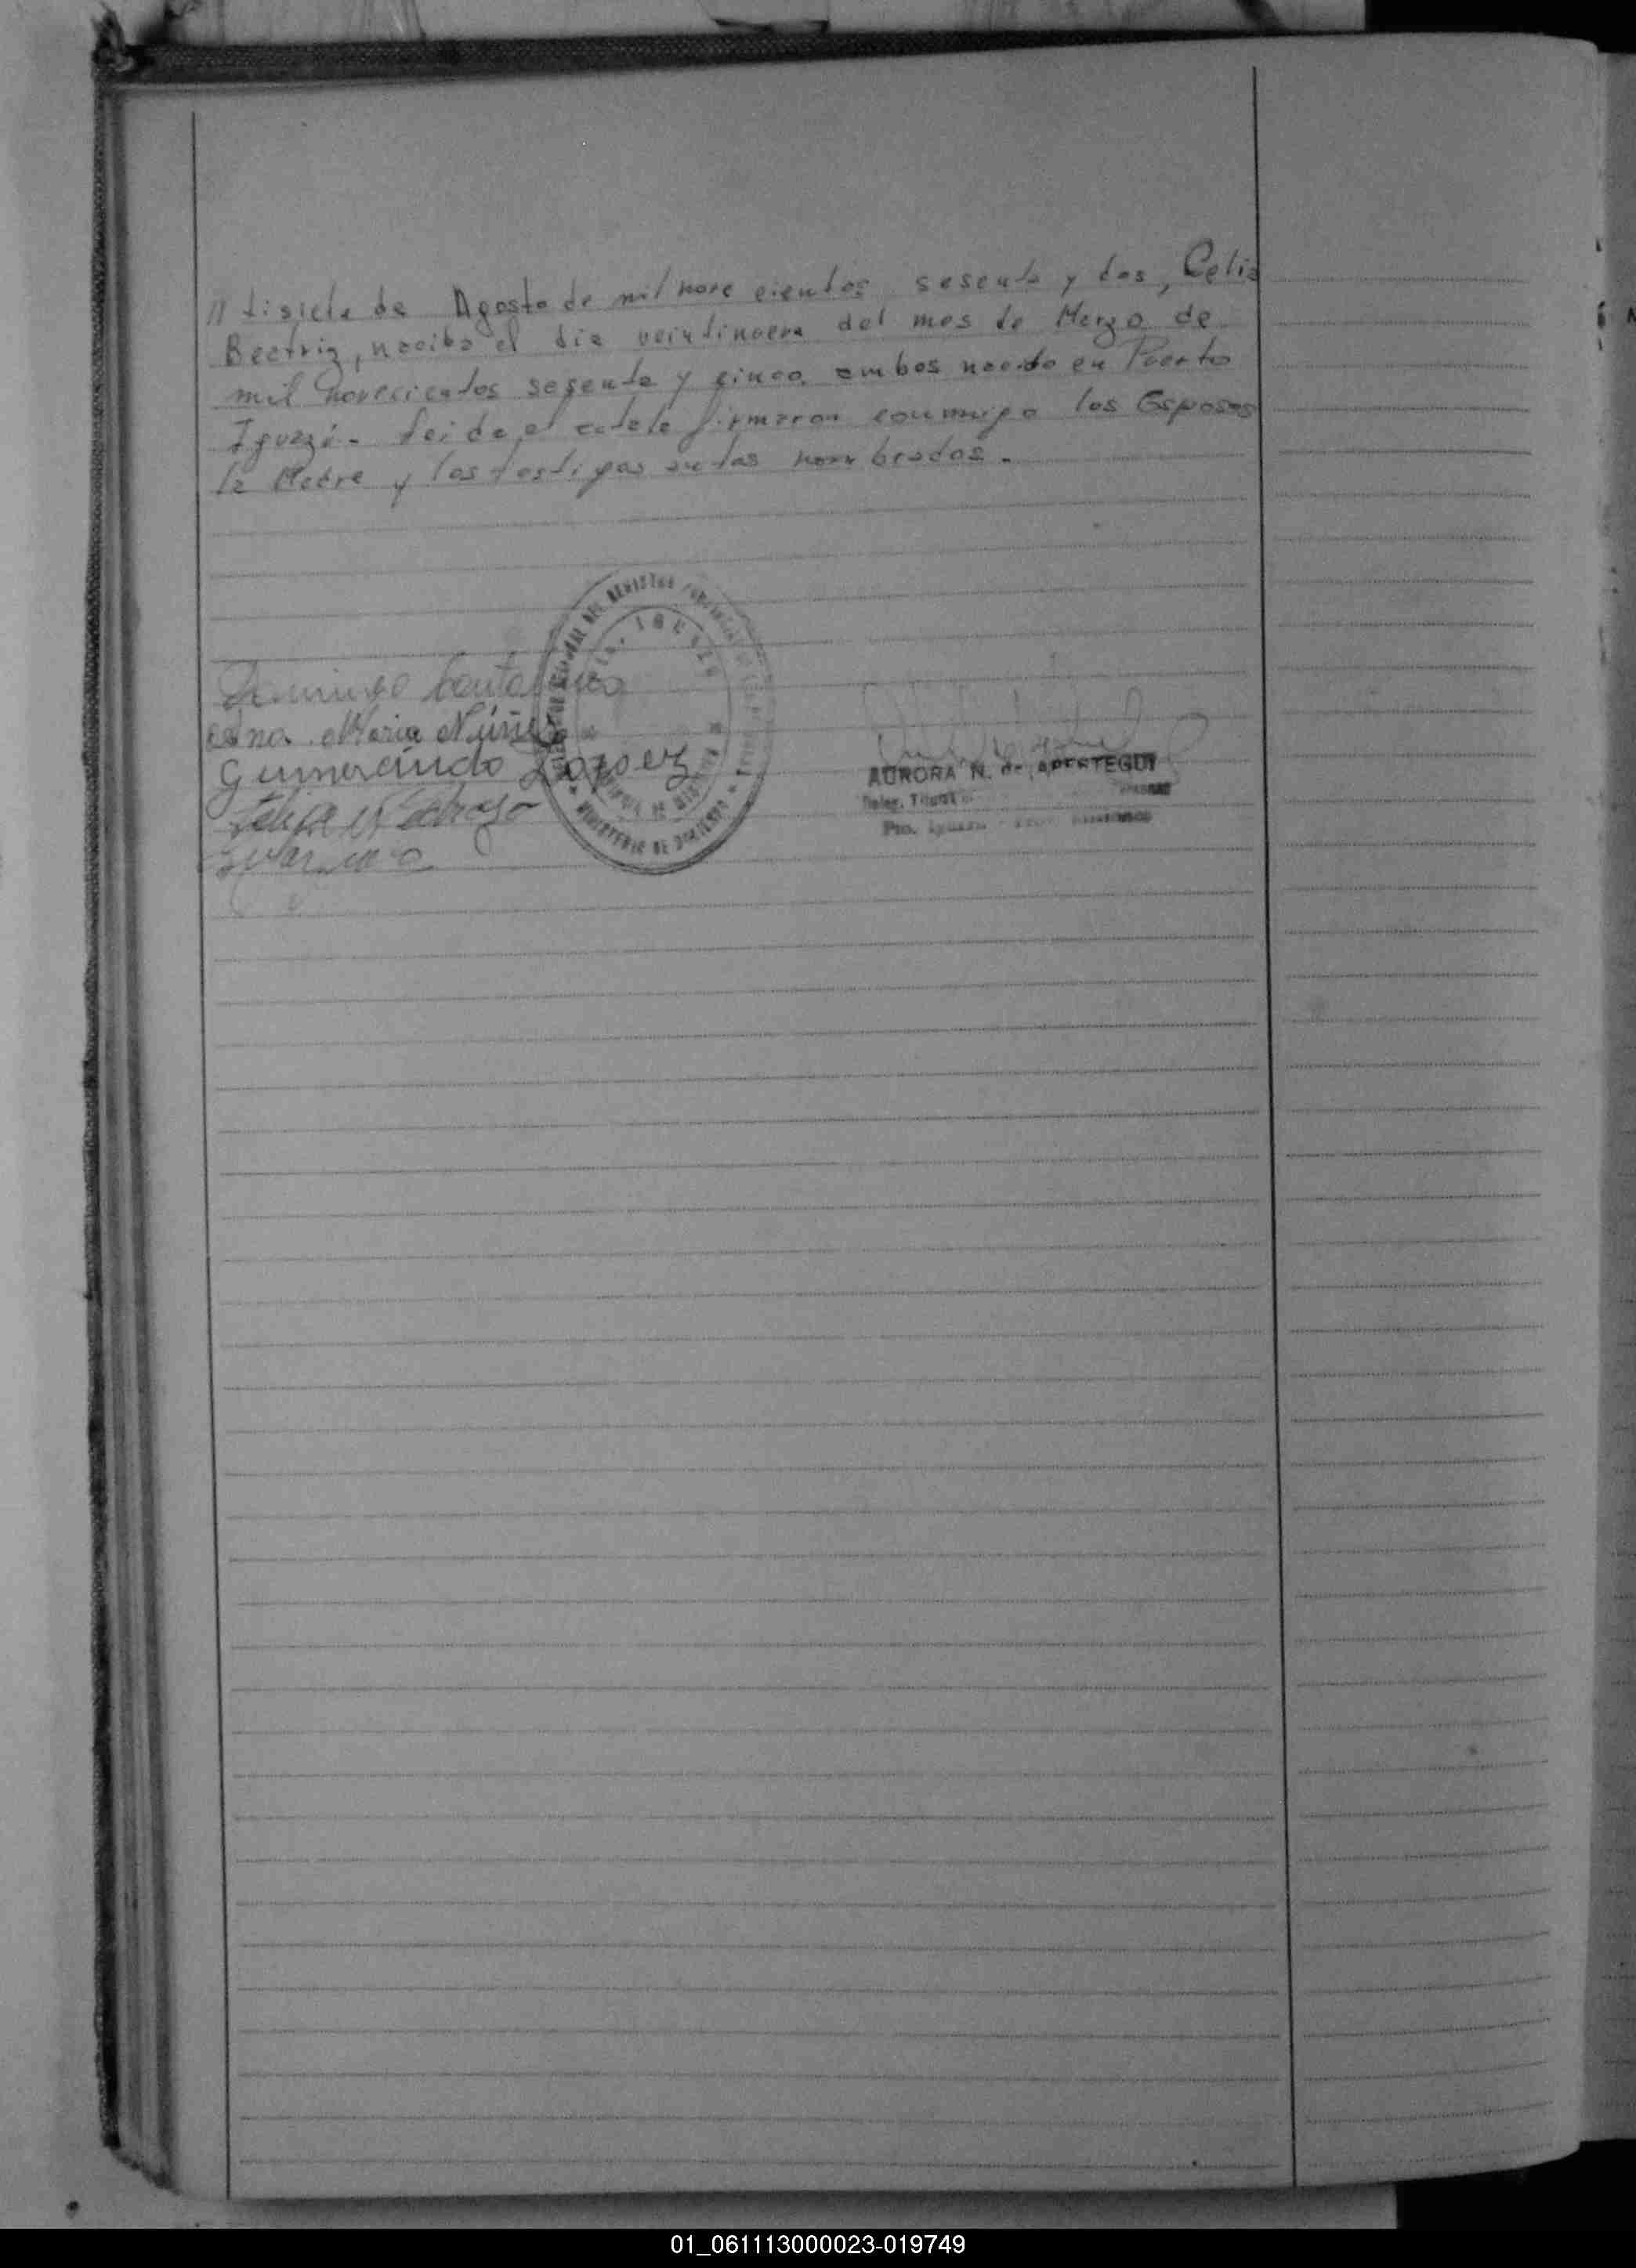 // tisiete de Agosto de mil nove cientos sesenta y dos, Celia
Beatriz, nacida el dia veintinueve del mes de Marzo de
mil novecientos sesenta y cinco, ambos nacido en Puerto
Iguazú. Leida el acta la firmaron conmigo los Esposos
la Madre y los testigos antes nombrados.
Domingo
Ana Maria Núñez
Gumercindo Lopez
AURORA N. de APESTEGUI
Deleg. Titular
Pto. Iguazú
MINISTERIO DE GOBIERNO
01_061113000023-019749